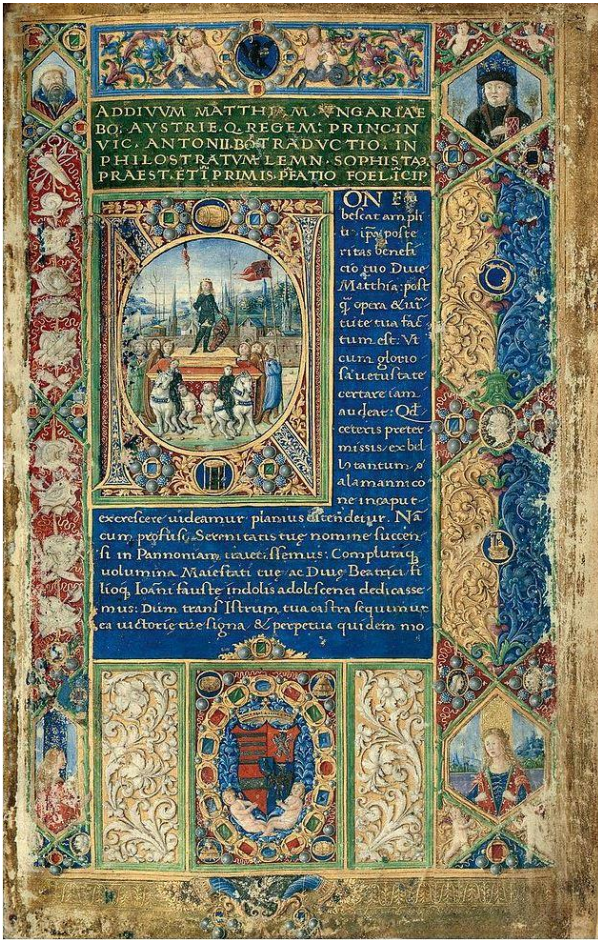 ADDIVVM MATTHI M. VNGARIAE
BO. AVSTRIE.Q. REGEM: PRINC. IN
VIC. ANTONII. BO. TRADVCTIO. IN
PHILOSTRATVM LEMN. SOPHISTA
PRAEST. ET Ī PRIMIS. PFATIO FOEL. ĪCIP
ON
bescat ampli
poste
ritas benefi
cio tuo Diue
Matthia: post
q̄ opera & uir
tute tua fac
tum est: Vt
cum glorio
sa uetustate
certare iam
audeat: Qd
ceteris preter
missis, ex bel
lo tantum
alamannico
ne in caput
excrescere uideamur planius ostendetur. Nā
cum profusi, Serenitatis tuę nomine succen
si in Pannoniam iuuetissemus: Compluraq,
uolumina Maiestati tuę ac Diuę Beatrici fi
lioq, Ioani fauste indolis adolescenti dedicasse
mus: Dum trans Istrum, tua castra sequimur,
ea uictorię tuę signa & perpetua quidem mo